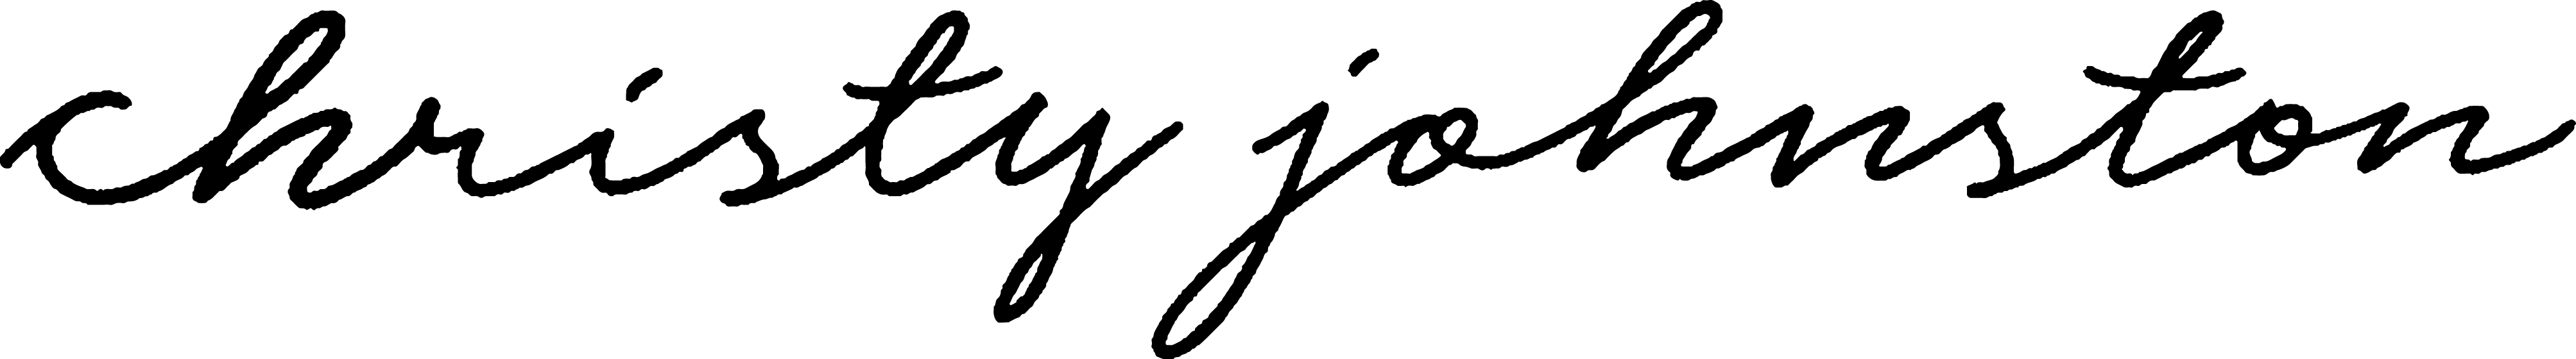 christy johnston